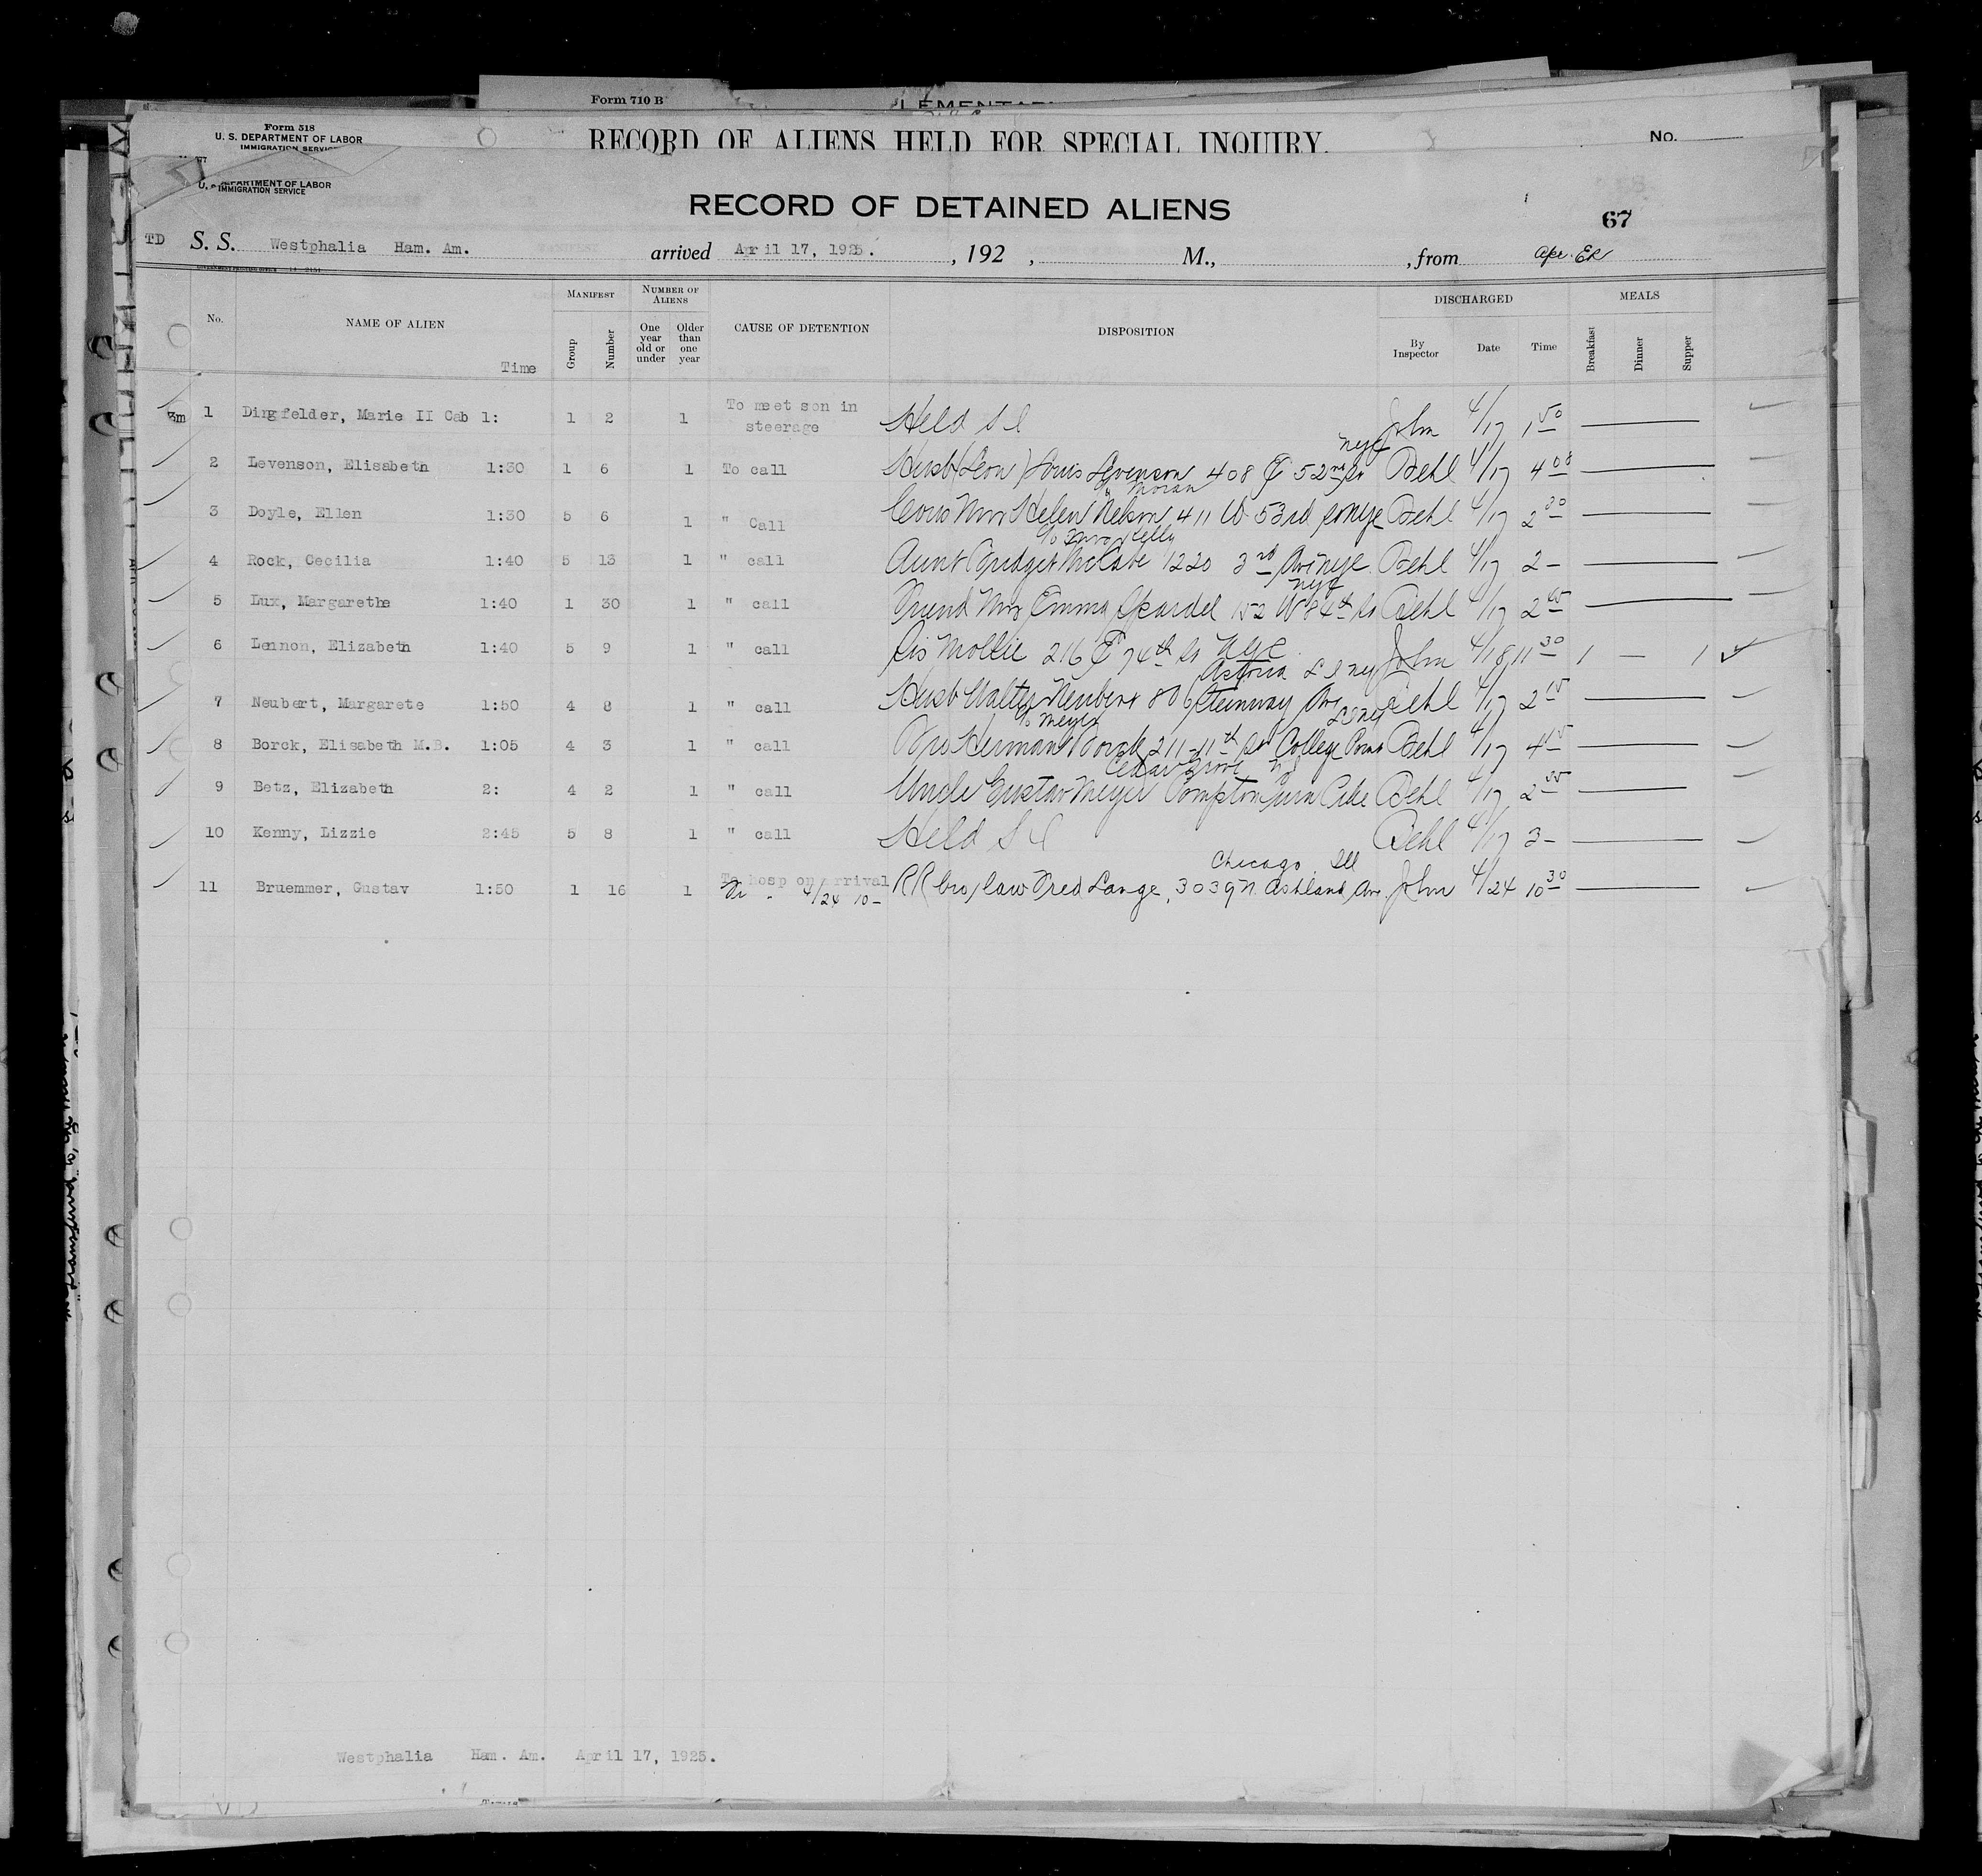 Form 710 B
Form 518
U. S. DEPARTMENT OF LABOR
IMMIGRATION SERVICE
RECORD OF ALIENS HELD FOR SPECIAL INQUIRY.
No.
U. S. DEPARTMENT OF LABOR
IMMIGRATION SERVICE
RECORD OF DETAINED ALIENS
67
TD S. S. Westphalia Ham. Am. arrived April 17, 1925. , 192 , M., , from
No. NAME OF ALIEN Time MANIFEST Group Number NUMBER OF ALIENS One year old or under Older than one year CAUSE OF DETENTION DISPOSITION DISCHARGED By Inspector Date Time MEALS Breakfast Dinner Supper
1 Dingfelder, Marie II Cab 1: 1 2 1 To meet son in steerage Held S I John 4/17 1 50
nyc
2 Levenson, Elisabeth 1:30 1 6 1 To call Husb (Leon) Louis Levenson 408 E 52nd St Behl 4/17 4 08
Moran
3 Doyle, Ellen 1:30 5 6 1 " Call Cous Mrs Helen Nelson 411 W 53rd St nyc Behl 4/17 2 30
c/o Mrs Kelly
4 Rock, Cecilia 1:40 5 13 1 " call Aunt Bridget McCabe 1220 3rd Ave nyc Behl 4/17 2 -
nyc
5 Lux, Margarethe 1:40 1 30 1 " call Friend Mrs Emma 152 W 84th St Behl 4/17 2
6 Lennon, Elizabeth 1:40 5 9 1 " call Sis Mollie 216 E 74th St nyc John 4/18 11 30 1 — 1
Astoria L I ny
7 Neubert, Margarete 1:50 4 8 1 " call Husb Walter Neubert 806 Steinway Ave Behl 4/17 2 15
c/o Meyer L I ny
8 Borck, Elisabeth M.B. 1:05 4 3 1 " call Bro Herman Borck 211-11th St College Point Behl 4/17 4 15
Cedar Grove N J
9 Betz, Elizabeth 2: 4 2 1 " call Uncle Gustav Meyer Pompton Turn Pike Behl 4/17 2 55
10 Kenny, Lizzie 2:45 5 8 1 " call Held S I Behl 4/17 3 -
Chicago Ill
11 Bruemmer, Gustav 1:50 1 16 1 To hosp on arrival 4/24 10 - RR bro/law Fred Lange, 3039 N. Ashland Ave. John 4/24 10 30
Westphalia Ham. Am. April 17, 1925.